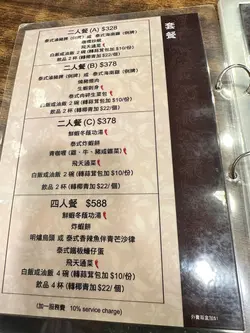 套餐
二人餐 (A) $328
泰式滷豬髀 (例牌) 或 泰式海南雞 (例牌)
飛天通菜
白飯或油飯 2 碗 (轉菇茸包加 $10/份)
飲品 2 杯 (轉椰青加 $22/個)
二人餐 (B) $378
泰式滷豬髀 (例牌) 或 泰式海南雞 (例牌)
燒豬頸肉
生蝦刺身
泰式肉碎生菜包
白飯或油飯 2 碗 (轉蒜茸包加 $10/份)
飲品 2 杯 (轉椰青加 $22/個)
二人餐 (C) $378
鮮蝦冬蔭功湯
泰式炸蝦餅
青咖喱 (雞、牛、豬或雜菜)
飛天通菜
白飯或油飯 2 碗 (轉蒜茸包加 $10/份)
飲品 2 杯 (轉椰青加 $22/個)
四人餐 $588
鮮蝦冬蔭功湯
炸蝦餅
明爐烏頭 或 泰式香辣魚伴青芒沙律
泰式鐵板蠔仔蛋
飛天通菜
白飯或油飯 4 碗 (轉蒜茸包加 $10/份)
飲品 4 杯 (轉椰青加 $22/個)
(加一服務費 10% service charge)